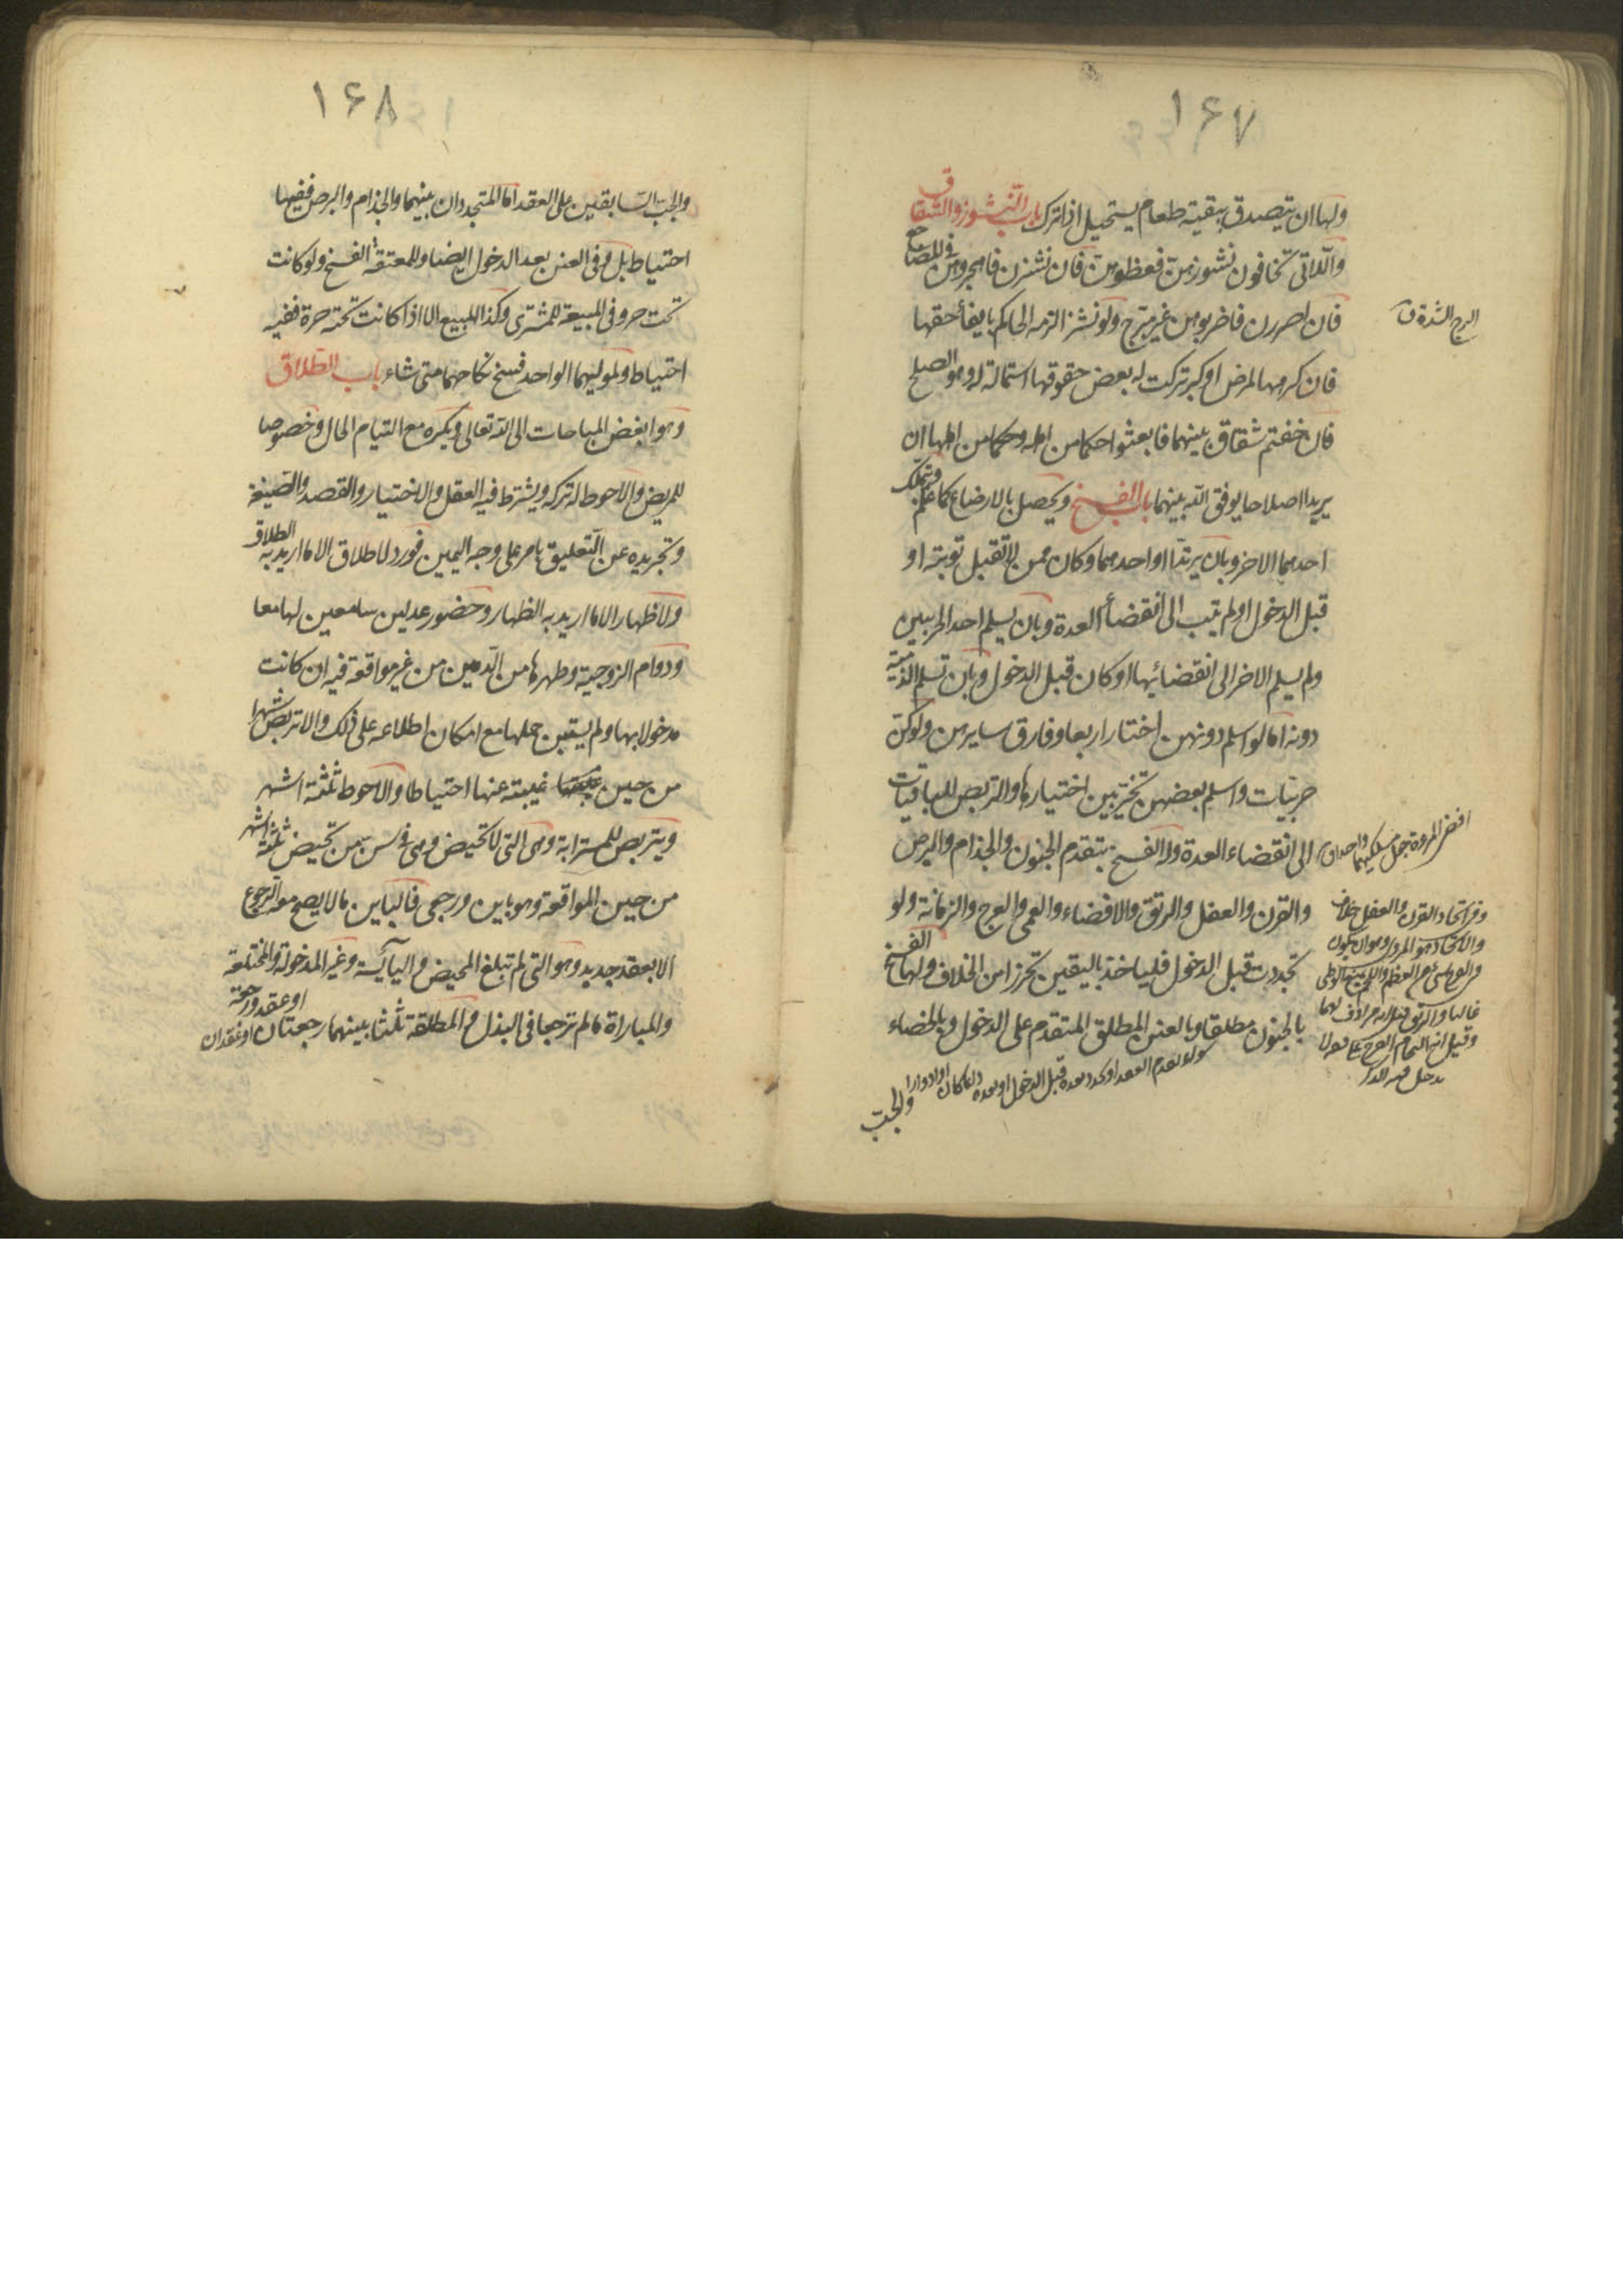 ۱۶۷
ولها ان يتصدق ببقية طعام يستحيل اذا ترك باب النشوز والشقاق
واللاتى تخافون نشوزهن فعظوهن فان نشزن فاهجروهن فى المضاجع
فان اصررن فاضربوهن غير مبرح ولو نشز الزمه الحاكم بايفاء حقها
فان كرهها لمرض او كبر تركت له بعض حقوقها استمالة له وهو الصلح
فان خفتم شقاق بينهما فابعثوا حكما من اهله وحكما من اهلها ان
يريدا اصلاحا يوفق الله بينهما باب الفسخ ويحصل بالارضاع كما علم وبتملك
احدهما الاخر وبان يرتدا او احدهما وكان ممن لا تقبل توبته او
قبل الدخول او لم يتب الى انقضاء العدة وبان يسلم احد الحربيين
ولم يسلم الاخر الى انقضائها او كان قبل الدخول وبان تسلم الذمية
دونه اما لو اسلم دونهن اختار اربعا وفارق سايرهن ولو كن
حربيات واسلم بعضهن تخير بين اختيارها والتربص للباقيات
الى انقضاء العدة وله الفسخ بتقدم الجنون والجذام والبرص
والقرن والعفل والرتق والافضاء والعمى والعرج والزمانة ولو
تجددت قبل الدخول فلياخذ باليقين تحرزا من الخلاف ولها الفسخ
بالجنون مطلقا وبالعنن المطلق المتقدم على الدخول وبالخضاء
سواء تقدم العقد او تجدد بعده قبل الدخول او بعده دائما كان او ادوارا
والجب
البرح الشدة ق
افضى المراة جعل مسلكيها واحدا ق
وفى اتحاد القرن والعفل خلاف
والاتحاد هو المروى وهو ان يكون
فى الفرج شئ من العظم واللحم يمنع الوطى
غالبا والرتق قيل انه مرادف لهما
وقيل انه التحام الفرج
يدخل فيه الذكر
۱۶۸
والجب السابقين على العقد اما المتجددان بينهما والجذام والبرص ففيها
احتياط بل وفى العنن بعد الدخول ايضا وللمعتقة الفسخ ولو كانت
تحت حر وفى المبيعة للمشترى وكذا المبيع الا اذا كانت تحته حرة ففيه
احتياط ولموليهما الواحد فسخ نكاحهما متى شاء باب الطلاق
وهو ابغض المباحات الى الله تعالى ويكره مع التيام الحال وخصوصا
للمريض والاحوط له تركه ويشترط فيه العقل والاختيار والقصد والصيغة
وتجريده عن التعليق بامر على وجه اليمين فورد لا طلاق الا ما اريد به الطلاق
ولا ظهار الا ما اريد به الظهار وحضور عدلين سامعين لها معا
ودوام الزوجية وطهرها من الدمين من غير مواقعة فيه ان كانت
مدخولا بها ولم يستبن حملها مع امكان اطلاعه على ذلك والا تربص شهرا
من حين غيبته عنها احتياطا والاحوط ثلثة اشهر
ويتربص للمسترابة وهى التى لا تحيض وهى فى سن من تحيض ثلثة اشهر
من حين المواقعة وهو باين ورجعى فالباين ما لا يصح معه الرجوع
الا بعقد جديد وهو التى لم تبلغ المحيض واليائسة وغير المدخولة والمختلعة
والمباراة ما لم ترجعا فى البذل والمطلقة ثلثا بينهما رجعتان او عقدان
او عقد ورجعة